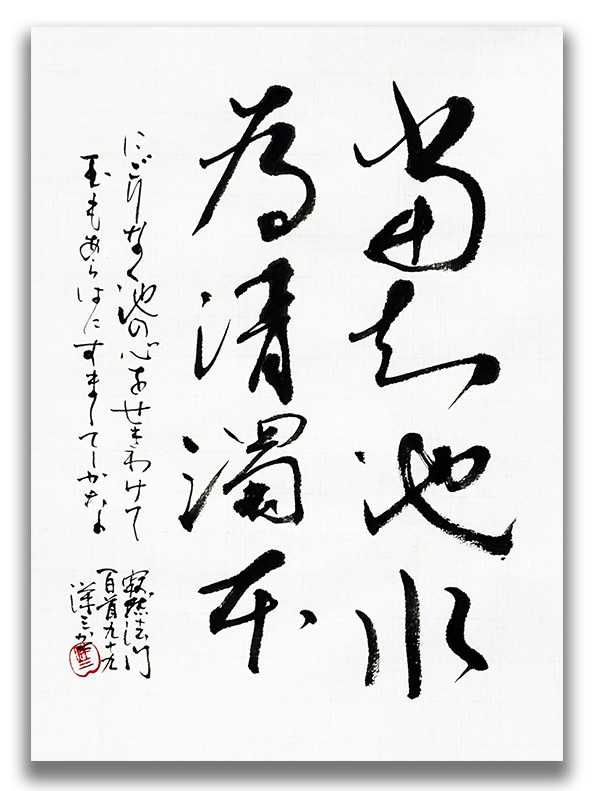 当知池水
為清濁本
にごりなく池の心をせきわけて
玉もあらはにすましてしかな
寂然法門
百首九十九
洋三